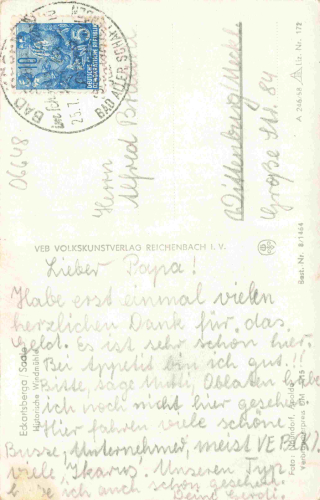 BAD
BAD
DEUTSCHE
DEMOKRATISCHE REPUBLIK
06648
Herrn
Alfred
Wittenburg/Meckl.
Große Str. 84
VEB VOLKSKUNSTVERLAG REICHENBACH I. V.
Best.-Nr. 8/1464
Eckartsberga / Saale
Historische Windmühle
Lieber Papa!
Habe erst einmal vielen
herzlichen Dank für das
Geld. Es ist sehr schön hier.
Bei Appetit bin ich gut!!
Bitte, sage Mutti, Oblaten habe
ich noch nicht hier gesehen
Hier fahren viele schöne
Busse, Unternehmer, meist VEB
viele "Ikarus". Unseren Typ
habe ich auch schon gesehen.
Deine